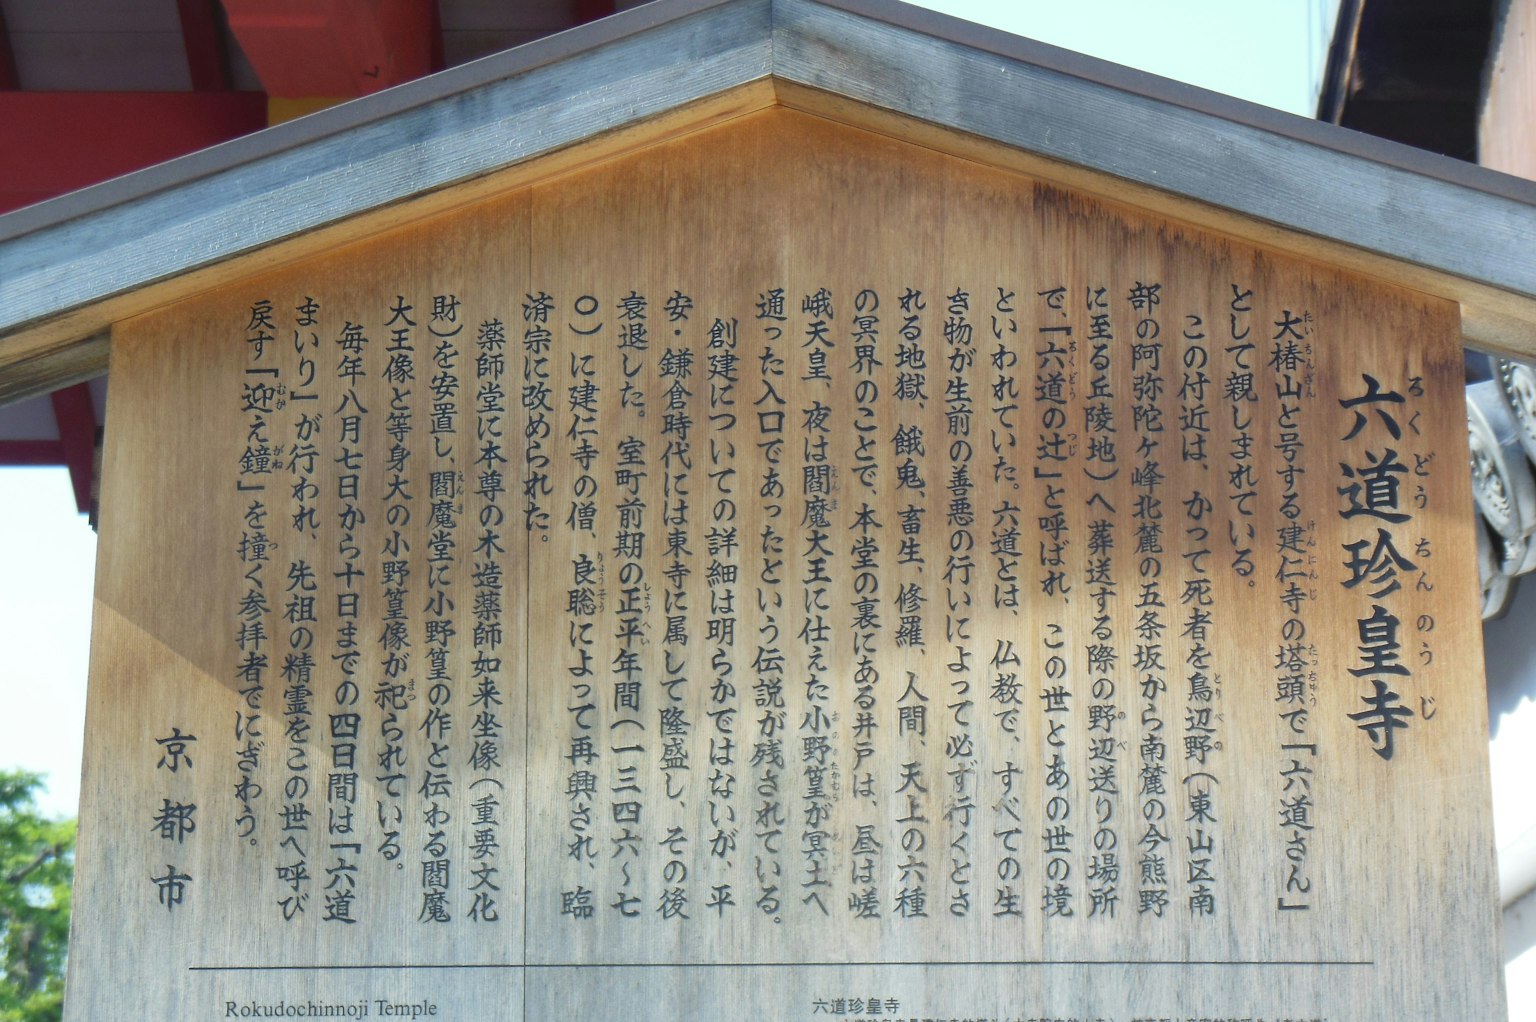 六道珍皇寺
大椿山と号する建仁寺の塔頭で「六道さん」
として親しまれている。
この付近は、かって死者を鳥辺野（東山区南
部の阿弥陀ヶ峰北麓の五条坂から南麓の今熊野
に至る丘陵地）へ葬送する際の野辺送りの場所
で、「六道の辻」と呼ばれ、この世とあの世の境
といわれていた。六道とは、仏教で、すべての生
き物が生前の善悪の行いによって必ず行くとさ
れる地獄、餓鬼、畜生、修羅、人間、天上の六種
の冥界のことで、本堂の裏にある井戸は、昼は嵯
峨天皇、夜は閻魔大王に仕えた小野篁が冥土へ
通った入口であったという伝説が残されている。
創建についての詳細は明らかではないが、平
安・鎌倉時代には東寺に属して隆盛し、その後
衰退した。室町前期の正平年間（一三四六〜七
〇）に建仁寺の僧、良聡によって再興され、臨
済宗に改められた。
薬師堂に本尊の木造薬師如来坐像（重要文化
財）を安置し、閻魔堂に小野篁の作と伝わる閻魔
大王像と等身大の小野篁像が祀られている。
毎年八月七日から十日までの四日間は「六道
まいり」が行われ、先祖の精霊をこの世へ呼び
戻す「迎え鐘」を撞く参拝者でにぎわう。
京都市
Rokudochinnoji Temple
六道珍皇寺